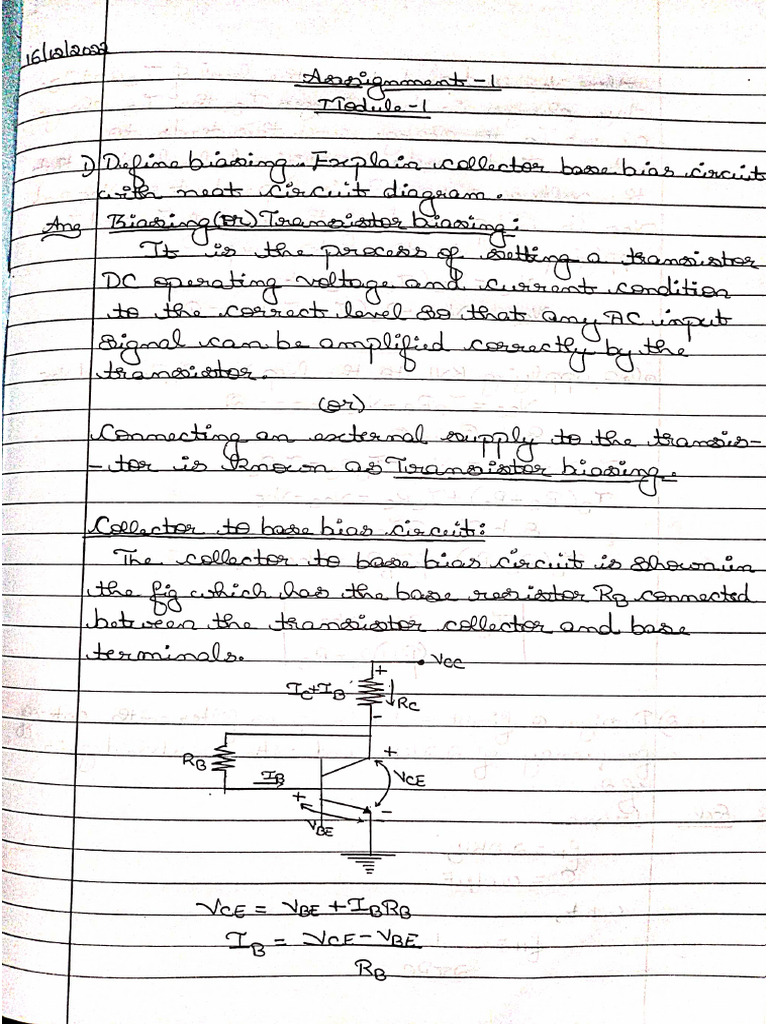 16/12/2022
Assignment-1
Module-1
1) Define biasing. Explain collector base bias circuit
with neat circuit diagram.
Ans Biasing (or) Transistor biasing:
It is the process of setting a transistor
DC operating voltage and current condition
to the correct level so that any AC input
signal can be amplified correctly by the
transistor.
(or)
Connecting an external supply to the transis-
-tor is known as Transistor biasing.
Collector to base bias circuit:
The collector to base bias circuit is shown in
the fig which has the base resistor RB connected
between the transistor collector and base
terminals.
VCC
+
IC+IB
RC
-
RB
+
IB
VCE
+
-
VBE
VCE = VBE + IBRB
IB = VCE - VBE
RB